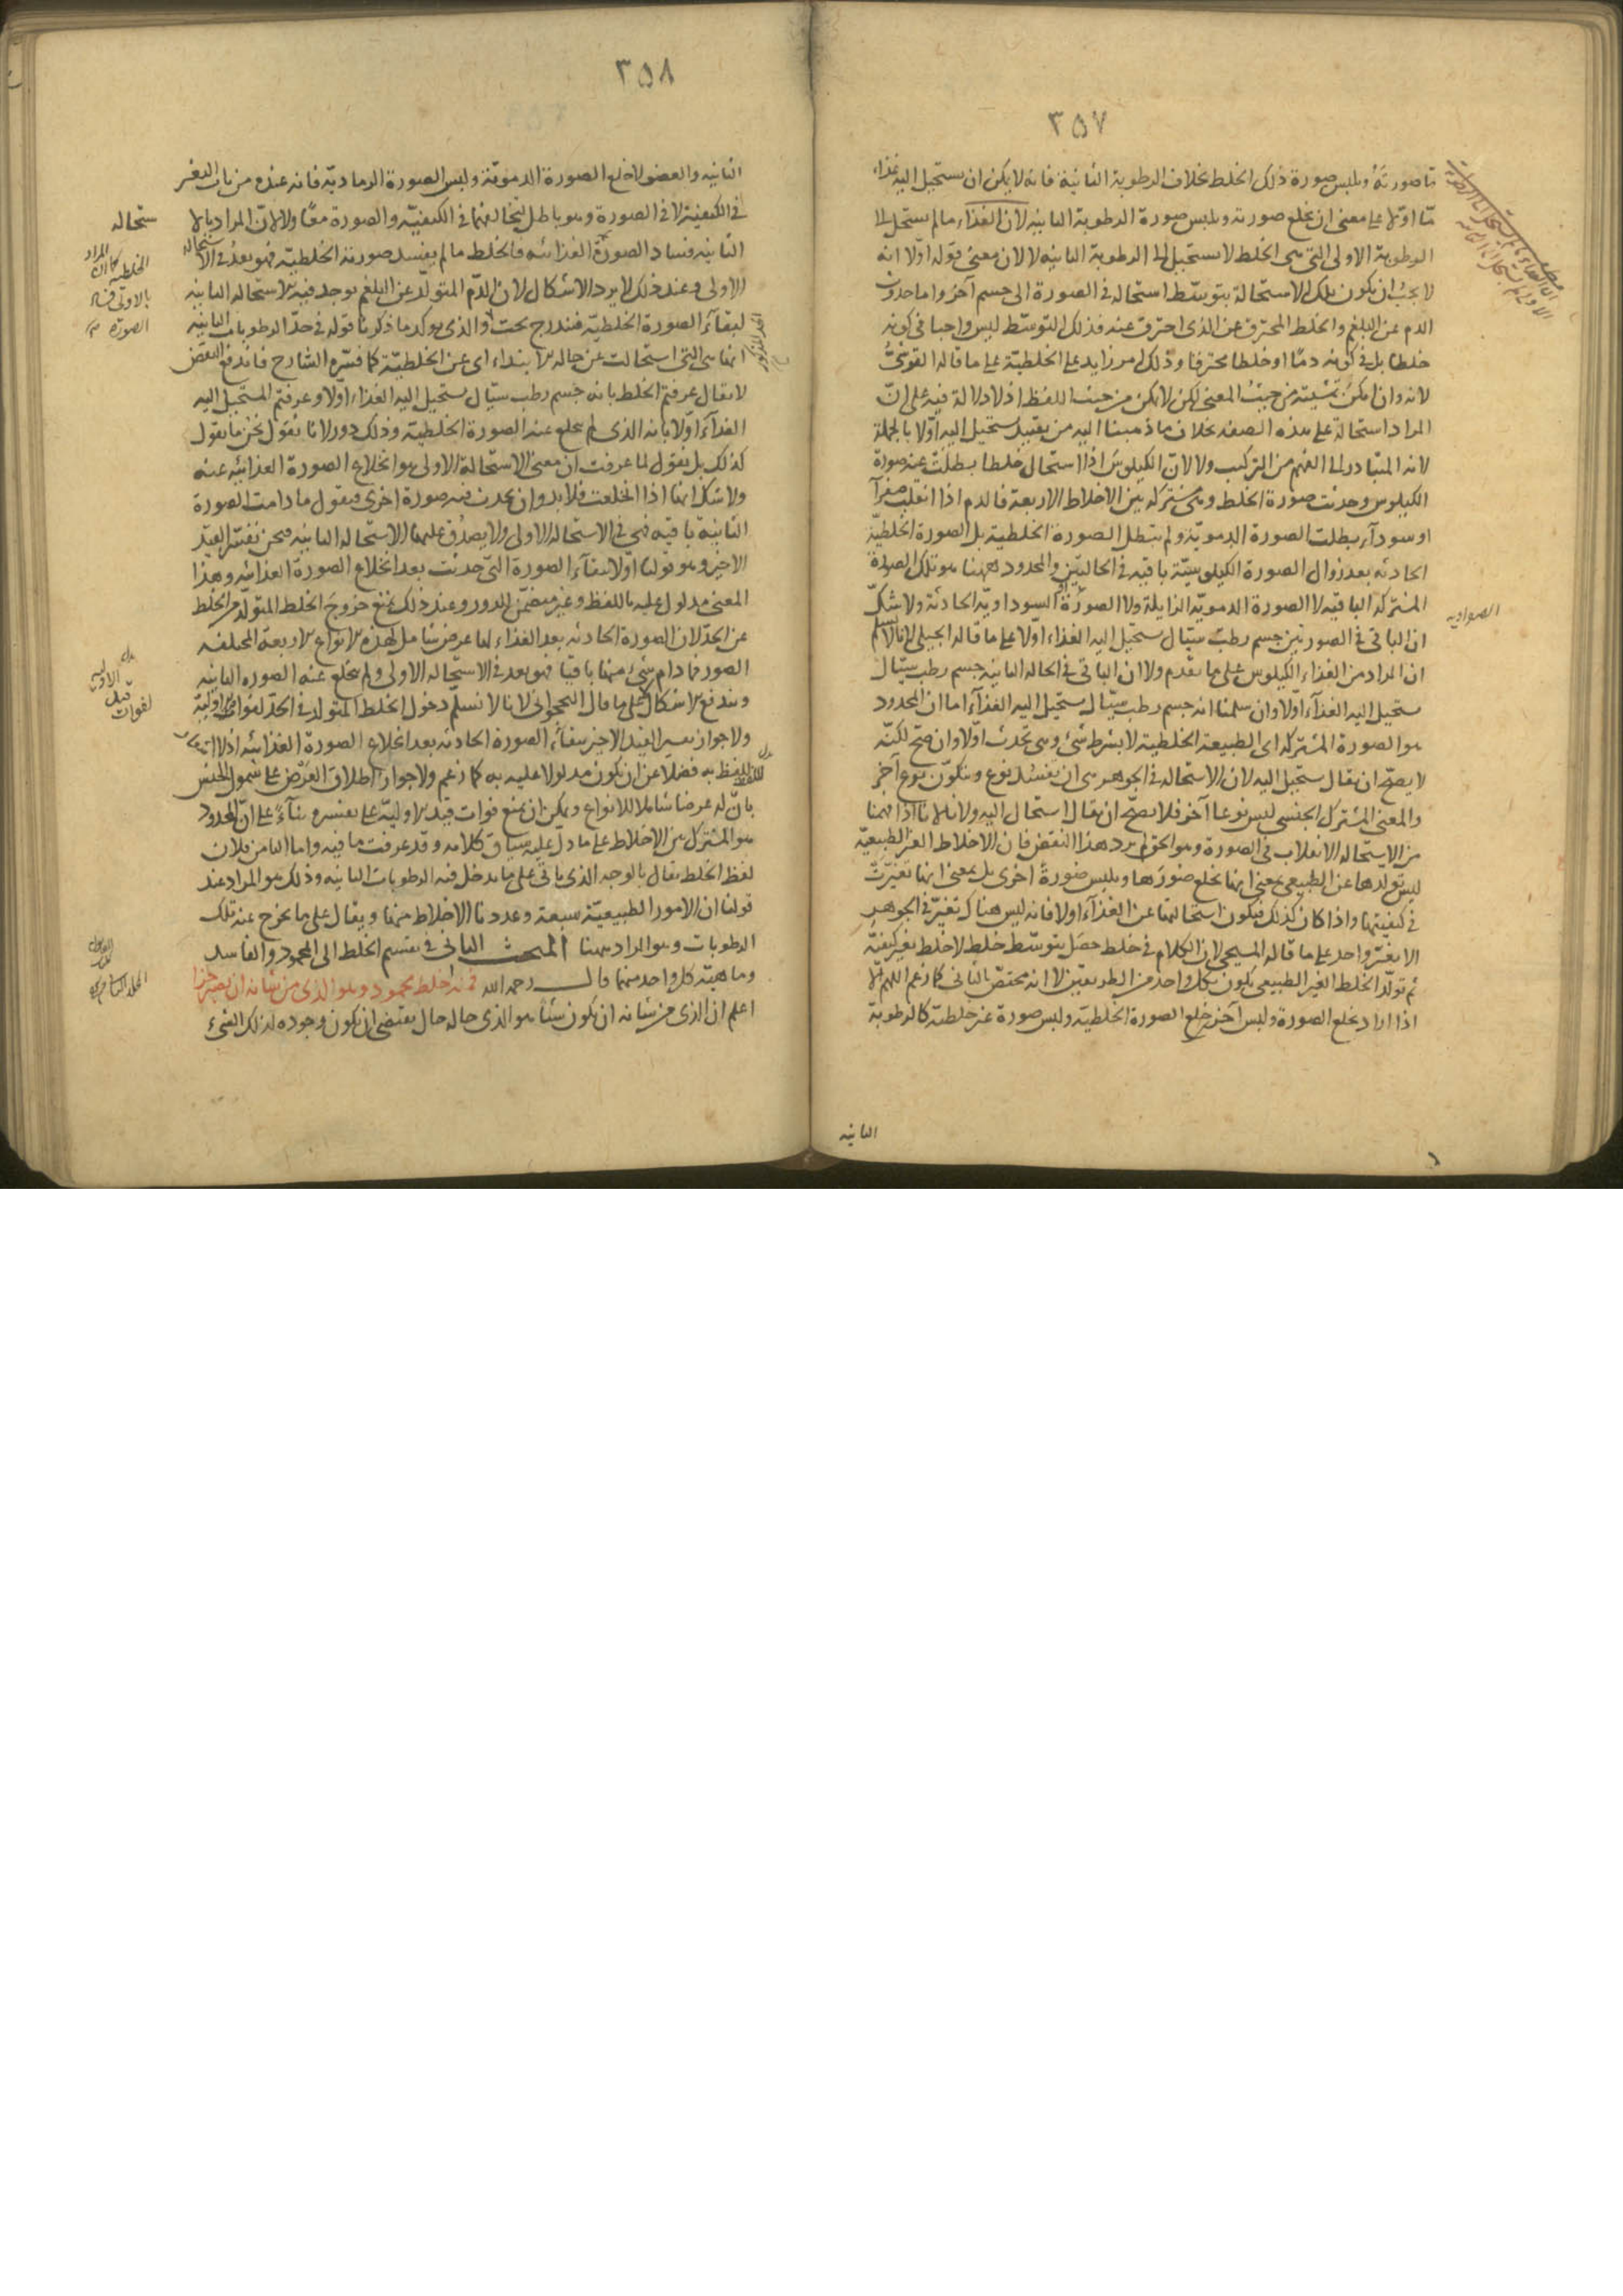 ٣٥٧
ما صورته ويلبس صورة ذلك الخلط بخلاف الرطوبة الثانية فانه لا يمكن ان يستحيل اليه غذاء
ما اولا على معنى ان يخلع صورته ويلبس صورة الرطوبة الثانية لان الغذاء ما لم يستحل الى
الرطوبة الاولى التى هى الخلط لا يستحيل الى الرطوبة الثانية لا لان معنى قوله اولا انه
لا يجب ان يكون تلك الاستحالة بتوسط استحاله فى الصورة الى جسم آخر واما حدوث
الدم عن البلغم والخلط المحترق عن الذى احترق عنه فذلك التوسط ليس واجبا فى كونه
خلطا بل فى كونه دما او خلطا محترقا وذلك امر زايد على الخلطية على ما قاله القرشى
لانه وان امكن من حيث المعنى لكن لا يمكن من حيث اللفظ اذ لا دلالة فيه على ان
المراد استحالة على هذه الصفه بخلاف ما ذهبنا اليه من تقييد يستحيل اليه اولا بالجملة
لانه المتبادر الى الفهم من التركيب ولا لان الكيلوس اذا استحال خلطا بطلت عنه صورة
الكيلوس وحدثت صورة الخلط وهى مشتركه بين الاخلاط الاربعة فالدم اذا انقلب صفرآ
او سودآء بطلت الصورة الدمويّة ولم تبطل الصورة الخلطية بل الصورة الخلطيّة
الحادثه بعد زوال الصورة الكيلوسيّة باقيه فى الحالتين والمحدود ههنا هو تلك الصورة
المشتركة الباقيه لا الصورة الدمويّه الزايلة ولا الصورة السوداويّه الحادثة ولا شكّ
ان الباقى فى الصورتين جسم رطب سيّال يستحيل اليه الغذاء اوّلا على ما قاله الجيلى لانا لا نسلم
ان المراد من الغذاء الكيلوس على ما تقدم ولا ان الباقى فى الحاله الثانيه جسم رطب سيّال
يستحيل اليه الغذآء اوّلا وان سلمنا انه جسم رطب سيّال يستحيل اليه الغذآء اما ان المحدود
هو الصورة المشتركه اى الطبيعة الخلطية لا بشرط شىء وهى تحدث اوّلا وان صحّ لكنّه
لا يصحّ ان يقال يستحيل اليه لان الاستحاله فى الجوهر هى ان يفسد نوع ويتكوّن نوع آخر
والمعنى المشترك الجنسى ليس نوعا آخر فلا يصحّ ان يقال استحال اليه ولا لانا اذا فهمنا
من الاستحاله الانقلاب فى الصورة وهو الحق لم يرد هذا النقض فان الاخلاط الغير الطبيعيّه
ليس تولّدها عن الطبيعى بمعنى انها تخلع صورها ويلبس صورةً اخرى بل بمعنى انها تغيّرت
فى كيفيتها واذا كان كذلك فيكون استحالتها عن الغذآء اولا فانه ليس هناك تغيّر فى الجوهر
الا تغيّر واحد على ما قاله المسيحى لان الكلام فى خلط حصل بتوسّط خلط لا خلط تغير كيفيّه
ثم تولّد الخلط الغير الطبيعى يكون بكل واحد من الطريقين لا انه مختصّ بالثانى كما زعم اللهمّ الا
اذا اراد بخلع الصورة ولبس آخر خلع الصورة الخلطيّه ولبس صورة غير خلطيّه كالرطوبة
الثانيه
٣٥٨
الثانيه والعضو لا خلع الصورة الدمويّة ولبس الصورة الرماديّه فانه عنده من باب التغير
فى الكيفية لا فى الصورة وهو باطل لتخالفهما فى الكيفيّه والصورة معًا ولا لان المراد بالا
ستحاله
الثانيه فساد الصورة الغذائيه فالخلط ما لم يفسد صورته الخلطيّه فهو بعدُ فى الاستحاله
الاولى وعند ذلك لا يرد الاشكال لان الدّم المتولّد عن البلغم يوجد فيه الاستحاله الثانيه
لبقآء الصورة الخلطيّه فيندرج تحت والذى يوكد ما ذكرنا قوله فى حدّ الرطوبات الثانيه
انها هى التى استحالت عن حاله الابتداء اى عن الخلطيّة كما فسّره الشارح فاندفع النقض
لا يقال عرفتم الخلط بانه جسم رطب سيّال يستحيل اليه الغذاء اوّلا وعرفتم المستحيل اليه
الغذآء اوّلا بانه الذى لم يخلع عنه الصورة الخلطية وذلك دور لانا نقول نحن ما نقول
كذلك بل نقول لما عرفت ان معنى الاستحالة الاولى هو انخلاع الصورة الغذائيه عنه
ولا شك انها اذا انخلعت فلا بد وان يحدث فيه صورة اخرى فيقول ما دامت الصورة
الثانية باقيه فهى فى الاستحاله الاولى ولا يصدق عليها الاستحاله الثانيه فنحن نفسّر القيد
الاخير وهو قولنا اوّلا ببقآء الصورة التى حدثت بعد انخلاع الصورة الغذائيه وهذا
المعنى مدلول عليه باللفظ وغير متضمّن للدور وعند ذلك يمنع خروج الخلط المتولّد من الخلط
عن الحدّ لان الصورة الحادثه بعد الغذاء لها عرض شامل لهذه الانواع الاربعة المختلفه
الصور فما دام شىء منها باقيا فهو بعد فى الاستحاله الاولى ولم يخلع عنه الصوره الثانيه
ويندفع الاشكال على ما قال لانا لا نسلّم دخول الخلط المتولد فى الحدّ لفوات الاوليّة
ولا جواز تفسير القيد الاخير ببقآء الصورة الحادثه بعد انخلاع الصورة الغذائيه اذ لا
للفظ به فضلا عن ان يكون مدلولا عليه به كما زعم ولا جواز اطلاق العرض على شمول الجنس
بانّ له عرضا شاملا للانواع ويمكن ان يمنع فوات قيد الاوليّة على تفسيره بنآءً على انّ المحدود
هو المشترك بين الاخلاط على ما دل عليه سياق كلامه وقد عرفت ما فيه واما الثامن فلان
لفظ الخلط يقال بالوجه الذى ياتى على ما يدخل فيه الرطوبات الثانيه وذلك هو المراد عند
قولنا ان الامور الطبيعيّة سبعة وعددنا الاخلاط منها ويقال على ما يخرج عنه تلك
الرطوبات وهو المراد ههنا المبحث الثانى فى تقسيم الخلط الى المحمود والفاسد
وماهيّه كل واحد منهما قال رحمه الله فمنه خلط محمود وهو الذى من شانه ان يصير جزا
اعلم ان الذى من شانه ان يكون شيئا هو الذى حاله حال يقتضى ان يكون وجوده لذلك الشىء